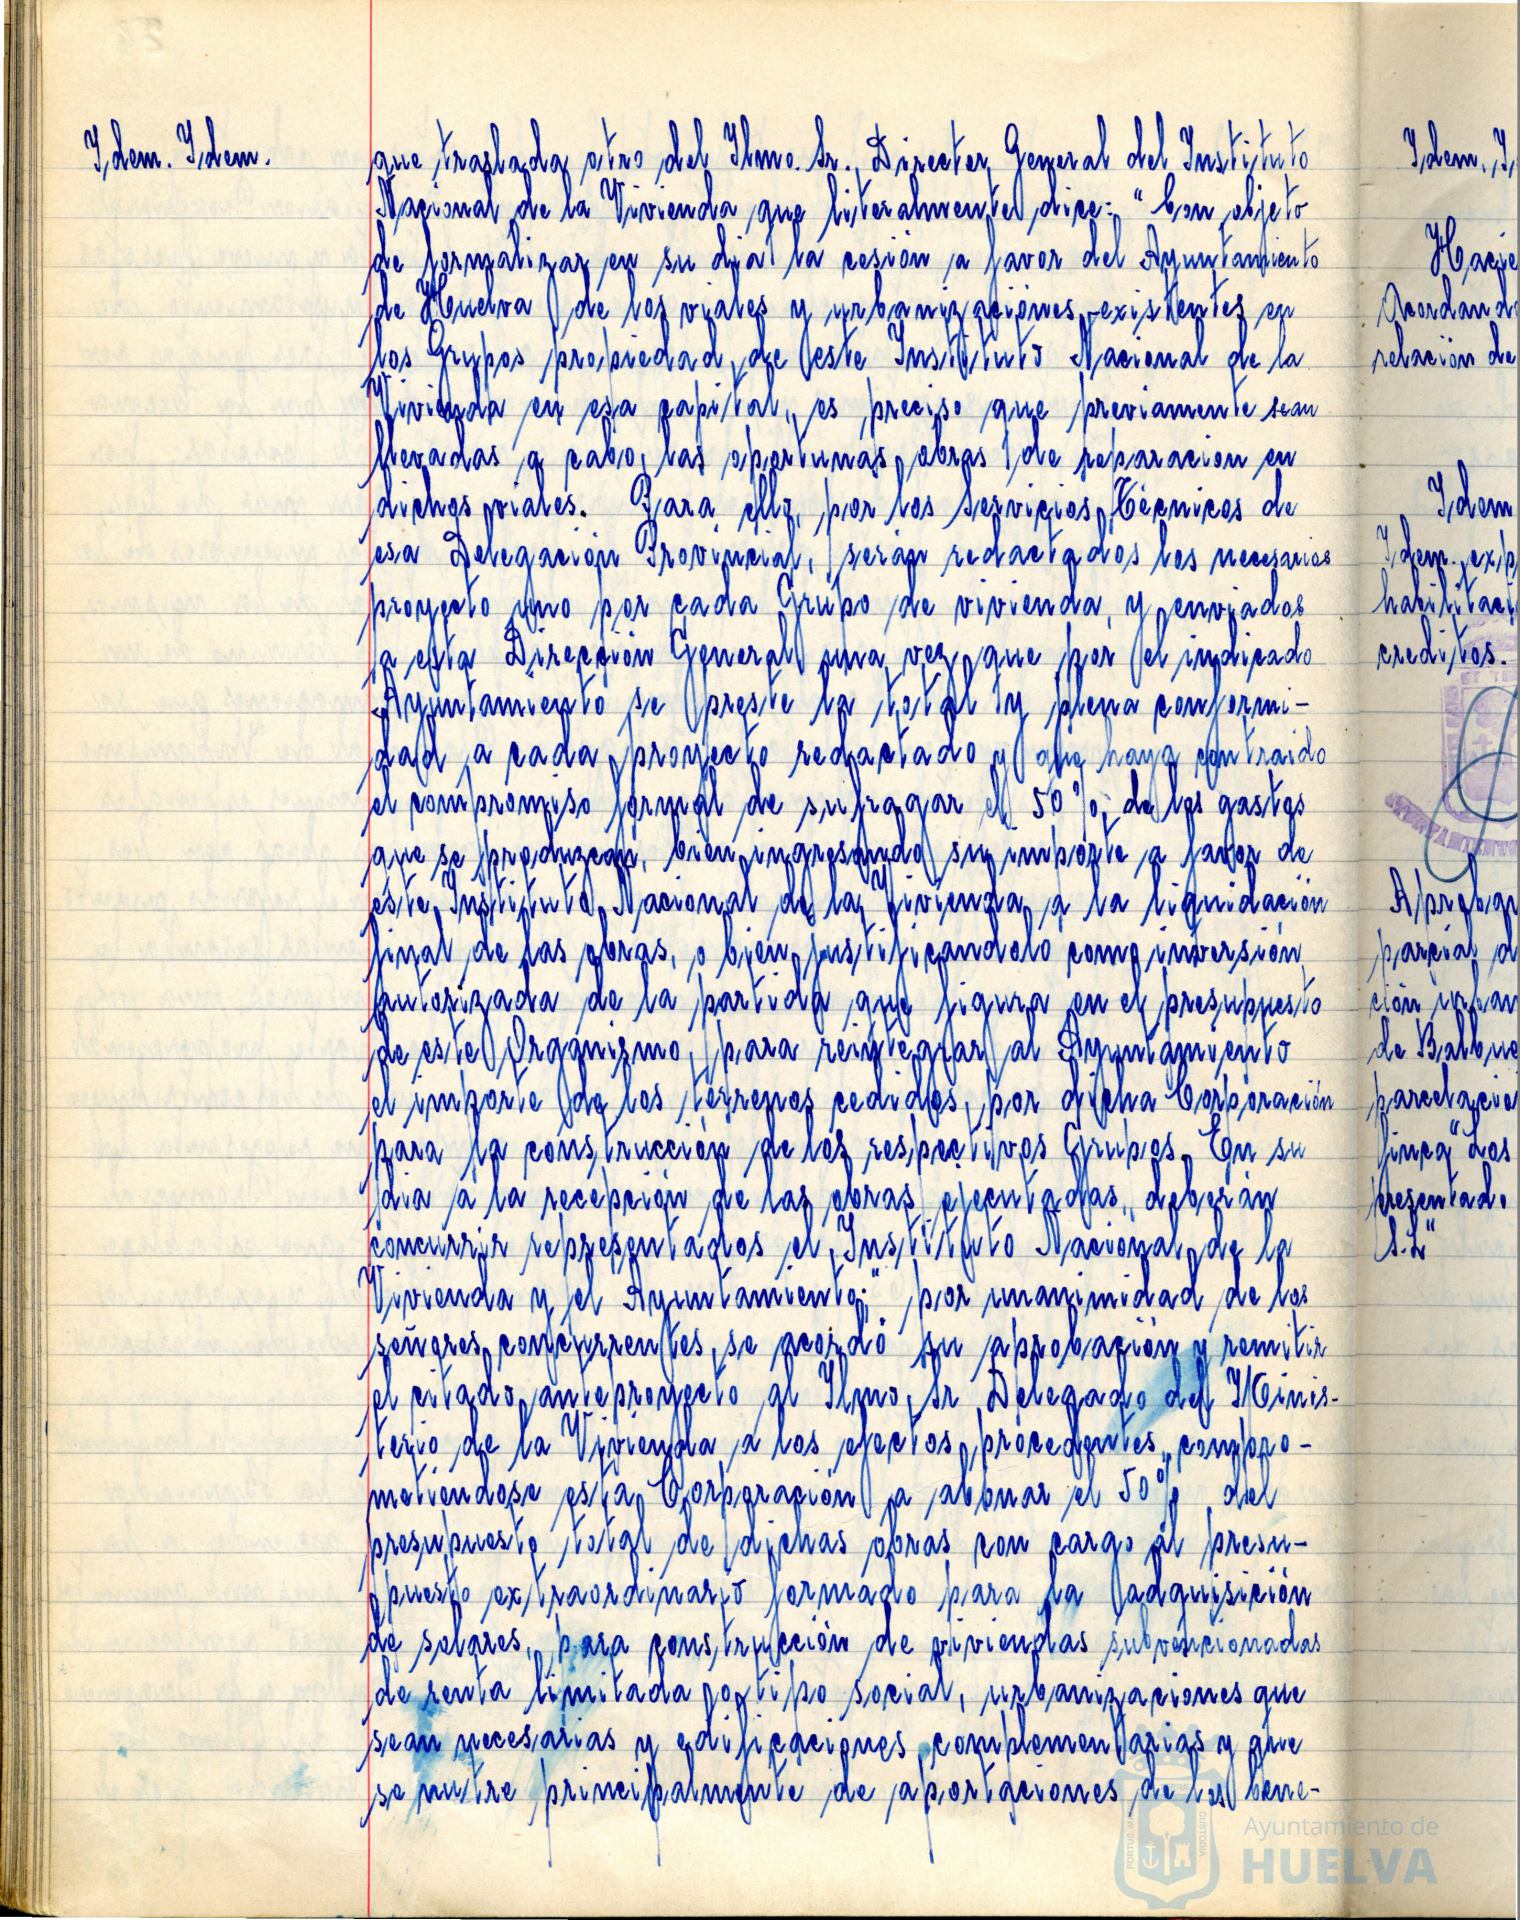 Idem. Idem.
que traslada otro del Ilmo. Sr. Director General del Instituto
Nacional de la Vivienda que literalmente dice: "Con objeto
de formalizar en su dia la cesión a favor del Ayuntamiento
de Huelva de los viales y urbanizaciones existentes en
los Grupos propiedad de este Instituto Nacional de la
Vivienda en esa capital, es preciso que previamente sean
llevadas a cabo, las oportunas obras de reparación en
dichos viales. Para ello, por los Servicios Técnicos de
esa Delegación Provincial, serán redactados los necesarios
proyecto uno por cada Grupo de vivienda, y enviados
a esta Dirección General una vez que por el indicado
Ayuntamiento se preste la total y plena conformi-
dad a cada proyecto redactado y que haya contraido
el compromiso formal de sufragar el 50% de los gastos
que se produzcan, bien ingresando su importe a favor de
este Instituto Nacional de la Vivienda a la liquidación
final de las obras, o bien justificandolo como inversión
autorizada de la partida que figura en el presupuesto
de este Organismo, para reintegrar al Ayuntamiento
el importe de los terrenos cedidos, por dicha Corporación
para la construcción de los respectivos Grupos. En su
dia a la recepción de las obras ejecutadas, deberán
concurrir representados el Instituto Nacional de la
Vivienda y el Ayuntamiento;" por unanimidad de los
señores concurrentes, se acordó su aprobación y remitir
el citado anteproyecto al Ilmo. Sr Delegado del Minis-
terio de la Vivienda a los efectos procedentes, compro-
metiendose esta Corporación a abonar el 50% del
presupuesto total de dichas obras con cargo al presu-
puesto extraordinario formado para la adquisición
de solares, para construcción de viviendas subvencionadas
de renta limitada o tipo social, urbanizaciones que
sean necesarias y edificaciones complementarias y que
se nutre principalmente de aportaciones de los bene-
Idem. I
Hacie
Acordand
relación de
Idem
Idem. exp
habilitaci
creditos.
Aprobar
parcial d
ción urban
de Balbue
parcelacio
finca "Los
presentado
S.L"
Ayuntamiento de
HUELVA